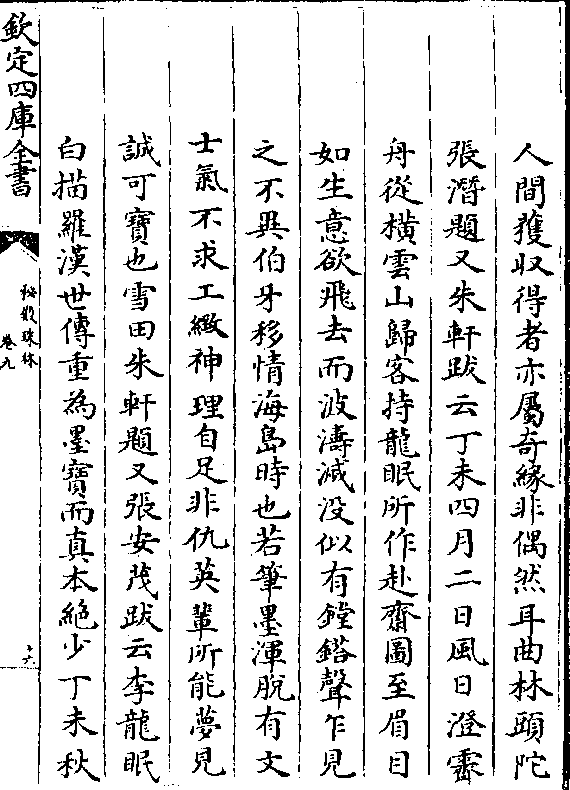 人間獲収得者亦屬奇緣非偶然耳曲林頭陀
張潛題又朱軒跋云丁未四月二日風日澄霽
舟從橫雲山歸客持龍眠所作赴齋圖至眉目
如生意欲飛去而波濤減没似有鏜鎝聲乍見
之不異伯牙移情海島時也若筆墨渾脫有文
士氣不求工緻神理自足非仇英輩所能夢見
誠可寶也雪田朱軒題又張安茂跋云李龍眠
白描羅漢世傳重為墨寶而真本絶少丁未秋
欽定四庫全書
秘殿珠林
卷九
十六